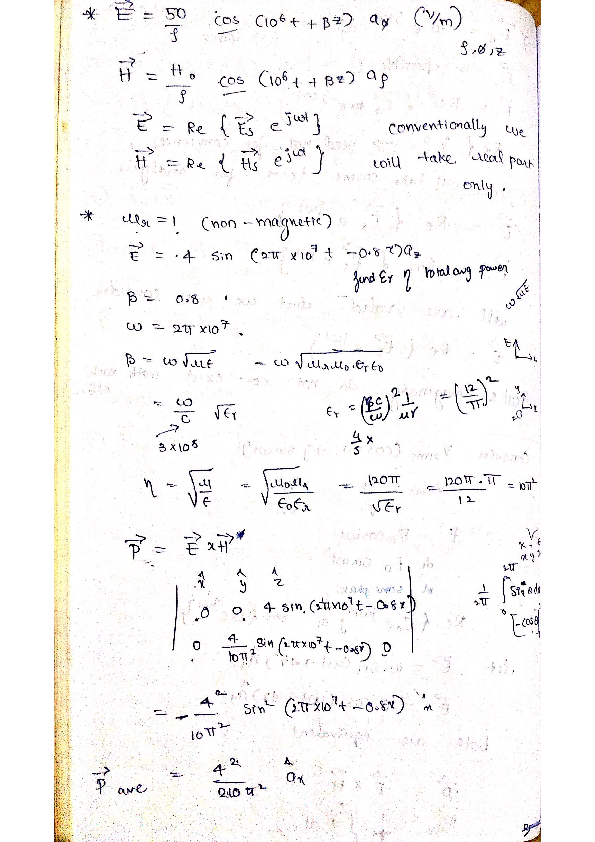 * E→ = 50/ρ cos (10⁶t + βz) aφ (V/m)
ρ,φ,z
H→ = H₀/ρ cos (10⁶t + βz) aρ
E→ = Re { Es→ e^jωt } conventionally we
H→ = Re { Hs→ e^jωt } will take real part
only.
* μr = 1 (non-magnetic)
E→ = .4 sin (2π ×10⁷t - 0.8x) az
find εr η total avg power
β = 0.8 ω√με
ω = 2π ×10⁷.
β = ω√με = ω√μrμ₀.εrε₀
= ω/c √εr εr = (βc/ω)² 1/μr = (12/π)²
3×10⁸
η = √μ/ε = √μ₀μr/ε₀εr = 120π/√εr = 120π.π/12 = 10π²
P→ = E→ × H→*
x̂ ŷ ẑ
0 0 4 sin (2π×10⁷t - 0.8x)
0 4/10π² sin (2π×10⁷t - 0.8x) 0
= - 4²/10π² sin² (2π×10⁷t - 0.8x) x̂
P→ ave = 4²/2·10π² âx